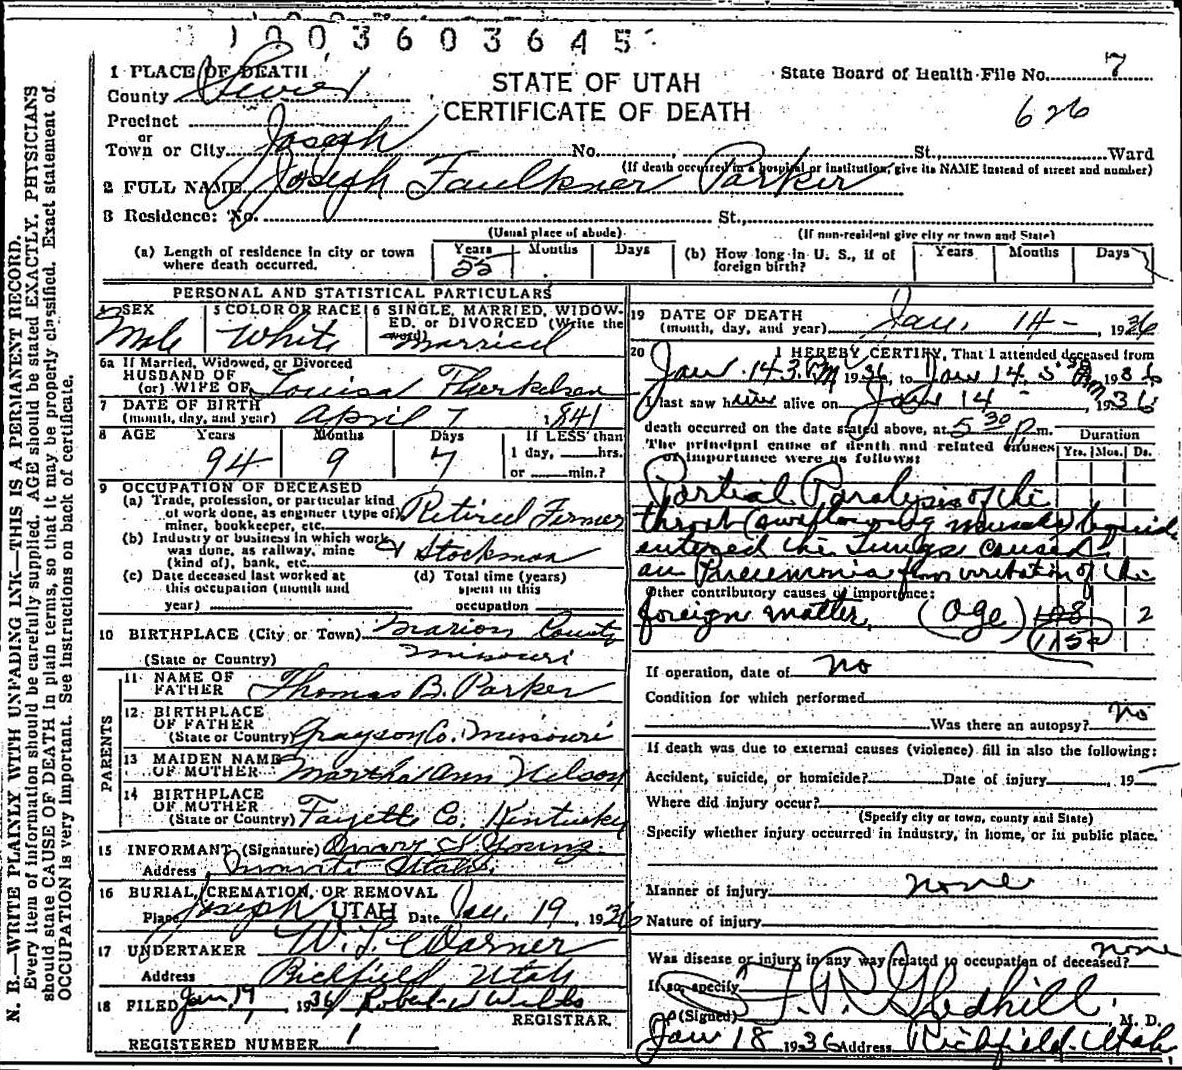 N. B.—WRITE PLAINLY WITH UNFADING INK—THIS IS A PERMANENT RECORD.
Every item of information should be carefully supplied. AGE should be stated EXACTLY. PHYSICIANS
should state CAUSE OF DEATH in plain terms, so that it may be properly classified. Exact statement of
OCCUPATION is very important. See instructions on back of certificate.
0100360364 5
1 PLACE OF DEATH
County Sevier
STATE OF UTAH
CERTIFICATE OF DEATH
State Board of Health File No. 7
626
Precinct
or
Town or City Joseph No. St., Ward
(If death occurred in a hospital or institution, give its NAME instead of street and number)
2 FULL NAME Joseph Faulkner Parker
3 Residence: No. St.,
(Usual place of abode) (If non-resident give city or town and State)
(a) Length of residence in city or town where death occurred. Years 55 Months Days
(b) How long in U. S., if of foreign birth? Years Months Days
PERSONAL AND STATISTICAL PARTICULARS
SEX Male
5 COLOR OR RACE White
6 SINGLE, MARRIED, WIDOWED, or DIVORCED (Write the word) Married
6a If Married, Widowed, or Divorced
HUSBAND OF
(or) WIFE OF Louisa Therkelsen
7 DATE OF BIRTH
(month, day, and year) April 7 1841
8 AGE Years 94 Months 9 Days 7
If LESS than
1 day, hrs.
or min.?
9 OCCUPATION OF DECEASED
(a) Trade, profession, or particular kind
of work done, as engineer (type of)
miner, bookkeeper, etc. Retired Farmer
(b) Industry or business in which work
was done, as railway, mine
(kind of), bank, etc. & Stockman
(c) Date deceased last worked at
this occupation (month and
year)
(d) Total time (years)
spent in this
occupation
10 BIRTHPLACE (City or Town) Marion County
(State or Country) Missouri
PARENTS
11 NAME OF FATHER Thomas B. Parker
12 BIRTHPLACE OF FATHER
(State or Country) Grayson Co. Missouri
13 MAIDEN NAME OF MOTHER Martha Ann Nelson
14 BIRTHPLACE OF MOTHER
(State or Country) Fayette Co. Kentucky
15 INFORMANT (Signature) Young
Address Utah.
16 BURIAL, CREMATION, OR REMOVAL
Place Joseph UTAH Date Jan. 19, 1936
17 UNDERTAKER W. I. Warner
Address Richfield Utah
18 FILED Jan 19 1936 Robert W
REGISTRAR.
REGISTERED NUMBER 1
19 DATE OF DEATH
(month, day, and year) Jan. 14 - , 1936
20 I HEREBY CERTIFY, That I attended deceased from
Jan. 14 3 PM 1936, to Jan 14, 5 30 Pm 1936
I last saw him alive on Jan 14 - , 1936
death occurred on the date stated above, at 5 30 p.m.
The principal cause of death and related causes
of importance were as follows:
Duration
Yrs. Mos. Ds.
Partial Paralysis of the
throat (swallowing muscles) liquids
entered the Lungs caused
an Pneumonia from irritation of the
Other contributory causes of importance:
foreign matter. (Age) 108 2
115a
If operation, date of no
Condition for which performed
Was there an autopsy? no
If death was due to external causes (violence) fill in also the following:
Accident, suicide, or homicide? Date of injury 19
Where did injury occur?
(Specify city or town, county and State)
Specify whether injury occurred in industry, in home, or in public place.
Manner of injury none
Nature of injury
Was disease or injury in any way related to occupation of deceased? none
If so, specify
(Signed) Gledhill, M. D.
Jan 18 1936 Address Richfield. Utah.